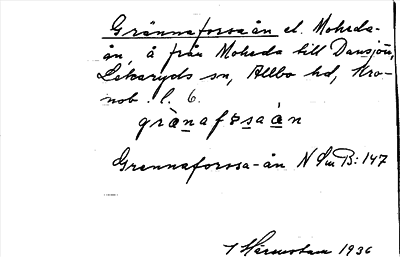 Grännaforsaån el. Moheda-
ån, å från Moheda till Dansjön,
Lekaryds sn, Allbo hd, Kro-
nob. l. 6.
grä̀nafɔsaán
Grennaforssa-ån N Sm B: 147
J Hermelin 1936